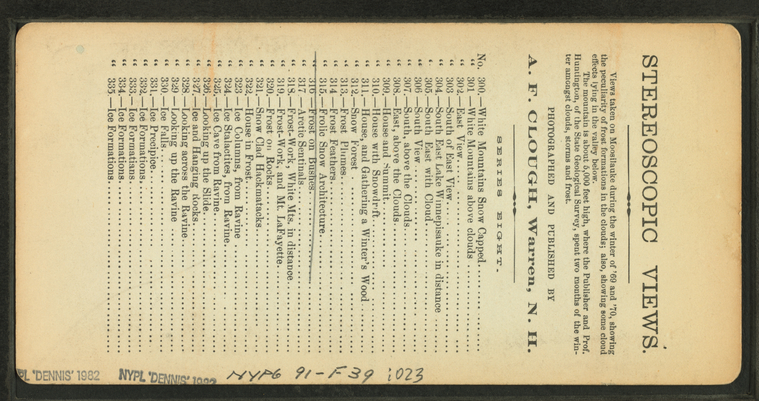 STEREOSCOPIC VIEWS.
Views taken on Moosilauke during the winter of '69 and '70, showing
the peculiarity of frost formations in the clouds; also, showing some cloud
effects lying in the valley below.
The mountain is about 5,000 feet high, where the Publisher and Prof.
Huntington, of the State Geological Survey, spent two months of the win-
ter amongst clouds, storms and frost.
PHOTOGRAPHED AND PUBLISHED BY
A. F. CLOUGH, Warren, N. H.
SERIES EIGHT.
No. 300.—White Mountains Snow Capped.
" 301—White Mountains above clouds
" 302.—East View.
" 303—South of East View.
" 304.—South East Lake Winnepisauke in distance
" 305—South East with Cloud.
" 306—South View
" 307.—South, above the Clouds.
" 308.—East, above the Clouds
" 309.—House and Summit.
" 310.—House with Snowdrift.
" 311.—House and Gathering a Winter's Wood
" 312.—Snow Forest
" 313.—Frost Plumes.
" 314—Frost Feathers
" 315.—Fossile Snow Architecture.
" 316—Frost on bushes.
" 317—Arctic Sentinals.
" 318.—Frost-Work, White Mts. in distance
" 319.—Frost-Work, and Mt. LaFayette.
" 320.—Frost on Rocks.
" 321.—Snow Clad Hackmatacks.
" 322.—House in Frost.
" 323.—Ice Columns, from Ravine
" 324.—Ice Stalactites, from Ravine.
" 325.—Ice Cave from Ravine.
" 326.—Looking up the Slide.
" 327.—Ice and Hanging Rocks.
" 328.—Looking across the Ravine
" 329—Looking up the Ravine
" 330.—Ice Falls.
" 331.—Ice Precipice.
" 332.—Ice Formations.
" 333.—Ice Formatians.
" 334.—Ice Formations.
" 335.—Ice Formations
PL 'DENNIS' 1982
NYPL 'DENNIS' 1982
NYPG 91-F39 i023